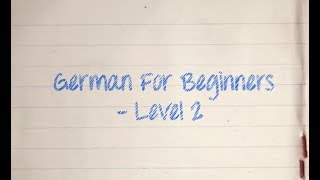 German For Beginners
- Level 2